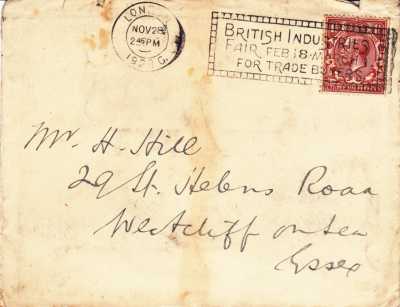 LON
NOV 28
2 45 PM
BRITISH INDUSTRIES
FAIR FEB 18-M
FOR TRADE B
Mr. H. Hill
29 St. Helens Road
Westcliff on Sea
Essex